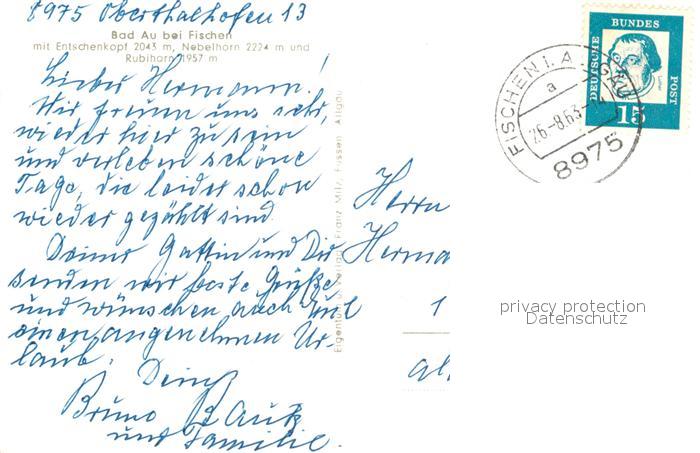 8975 Oberthalhofen 13
Bad Au bei Fischen
mit Entschenkopf 2043 m, Nebelhorn 2224 m und
Rubihorn 1957 m
Lieber Hermann!
Wir freuen uns sehr,
wieder hier zu sein
und verleben schöne
Tage, die leider schon
wieder gezählt sind.
Deiner Gattin und Dir
senden wir beste Grüße
und wünschen auch Euch
einen angenehmen Ur-
laub.
Dein
Bruno
und Familie.
Eigentum u. Verlag Franz Milz, Füssen Allgäu
DEUTSCHE BUNDES POST
Luther
15
FISCHEN I. ALLGÄU
a
26.-8.63-
8975
Herrn
Herma
1
privacy protection
Datenschutz